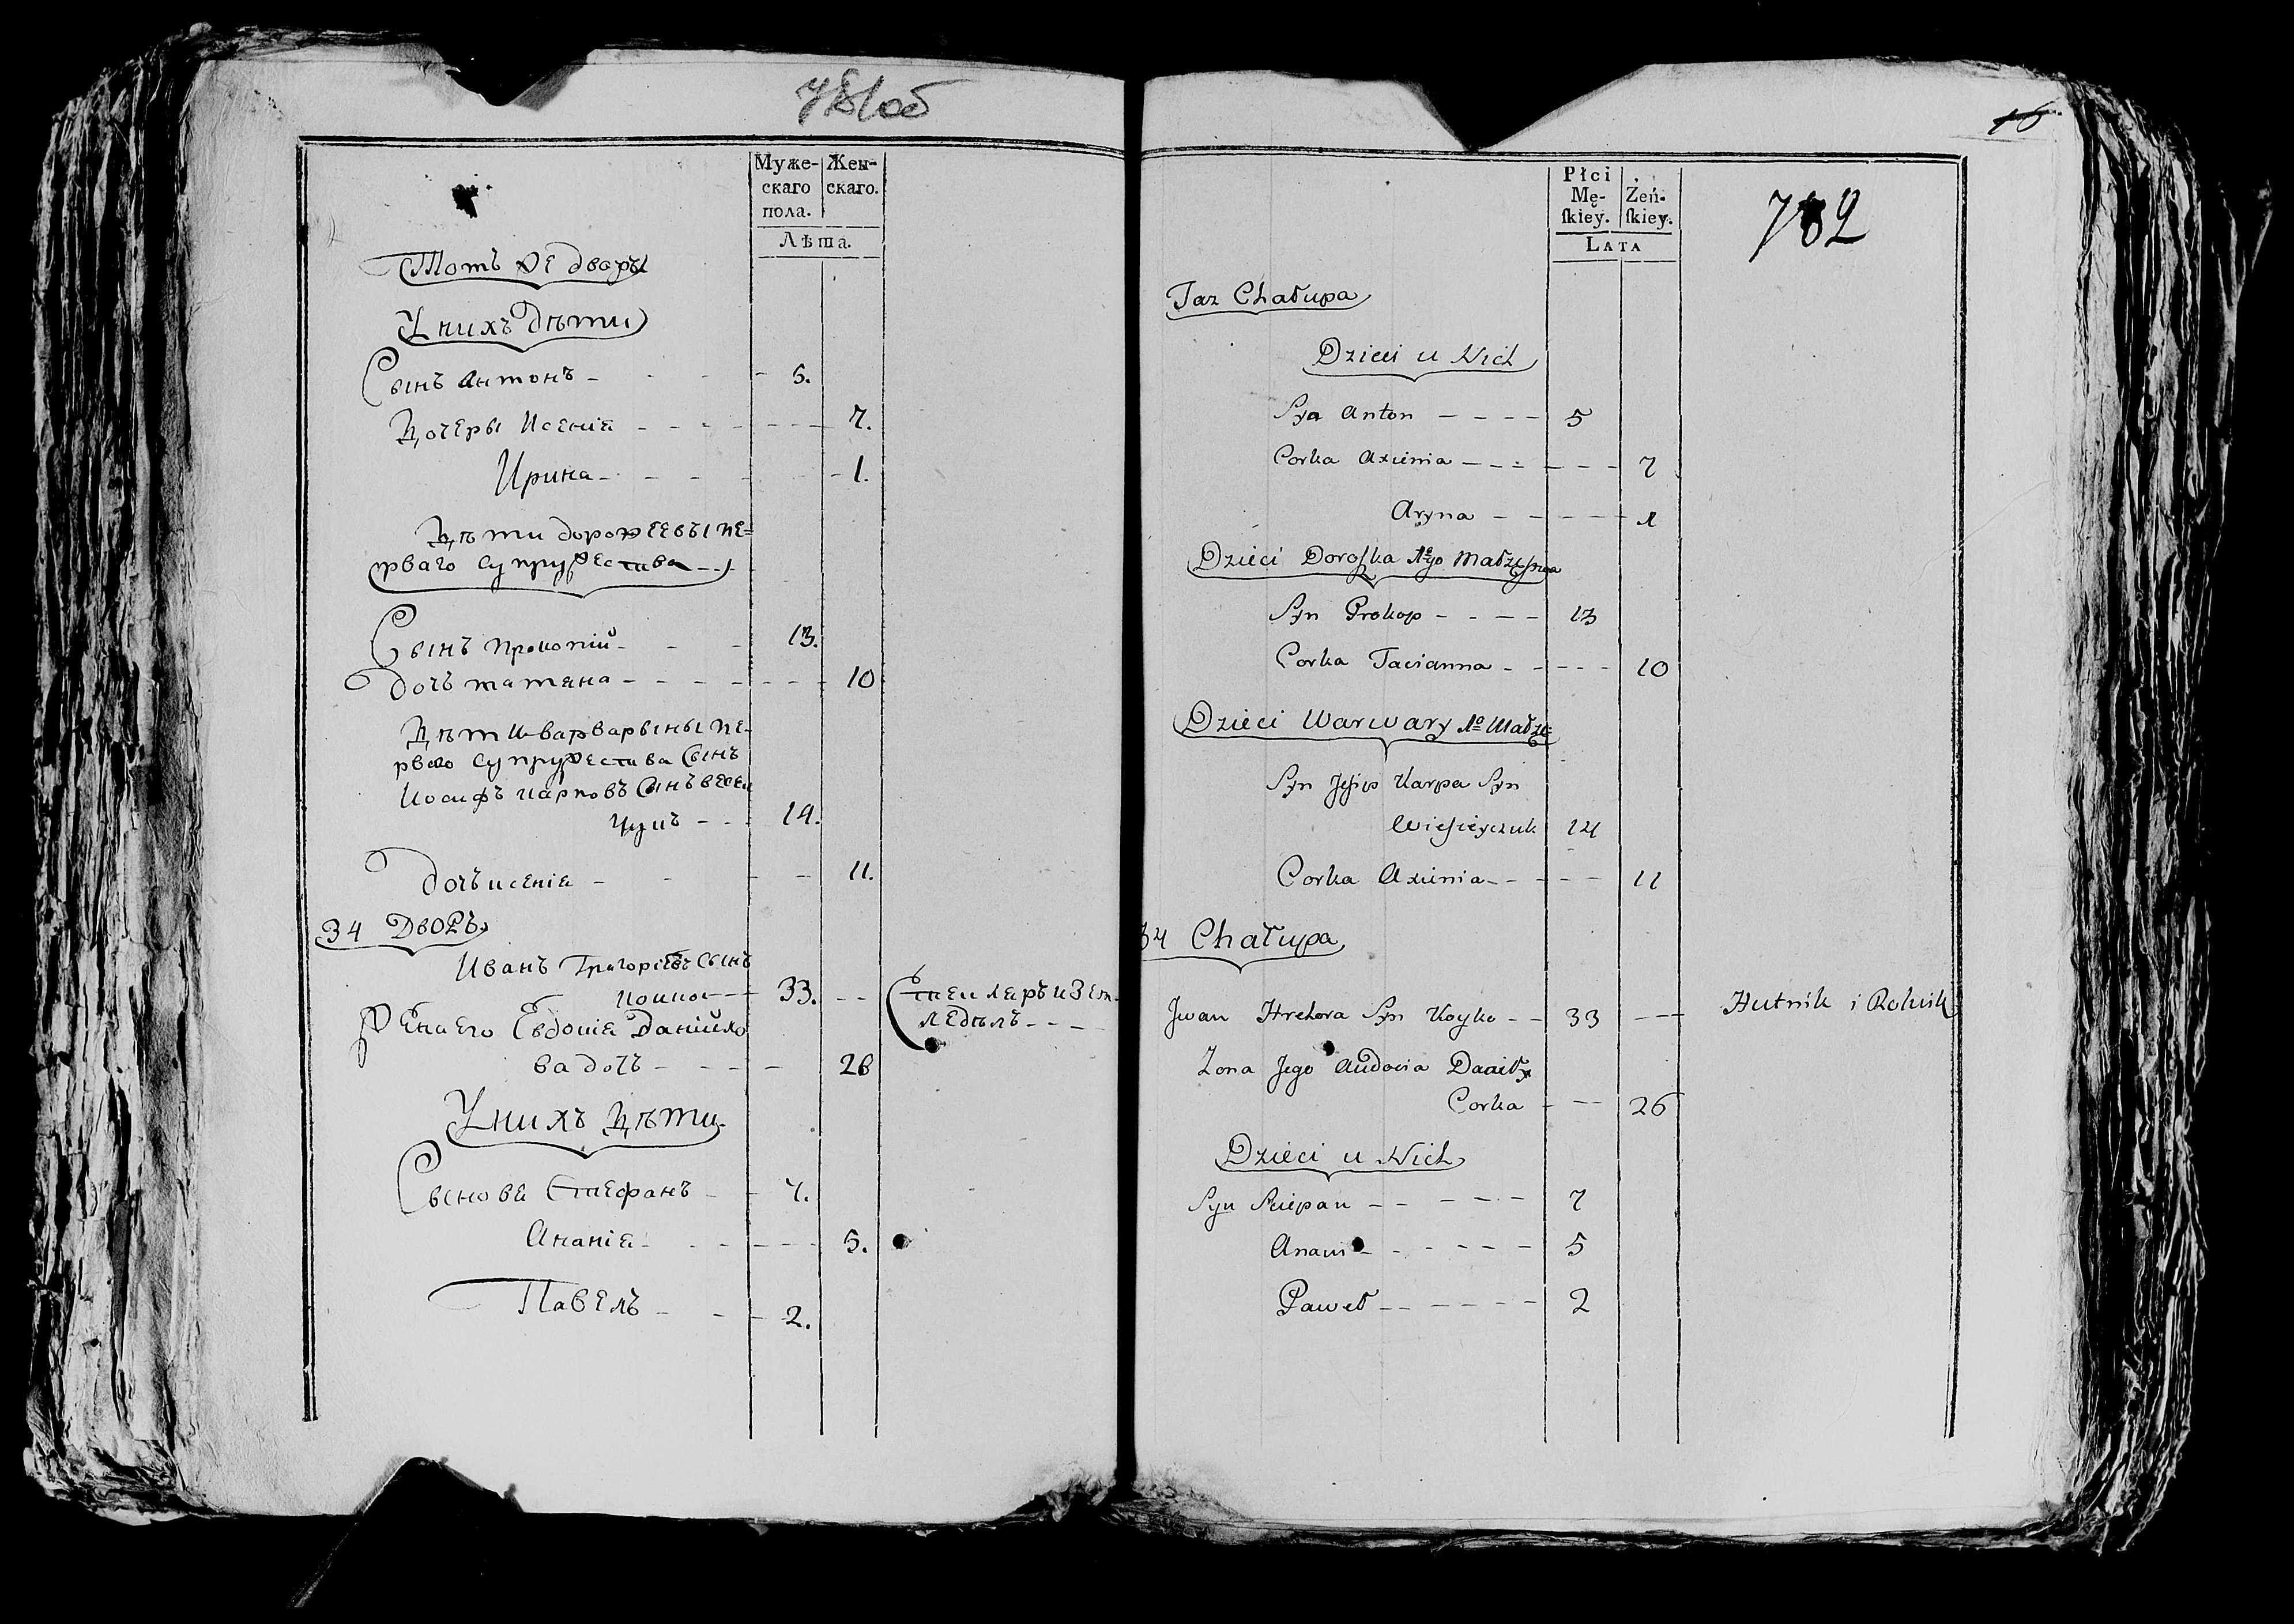 781об
Муже-
скаго
пола.
Жен-
скаго.
Лѣта.
Тотъ же дворъ
У нихъ Дѣти
Сынъ Антонъ - - - - 5.
Дочеры Ксенія - - - - - - - 7.
Ирина - - - - - 1.
Дѣти дорофеевы пе=
рваго супружества - -
Сынъ прокопій - - - 13.
дочь татяна - - - - - - - 10
Дѣти варварыны пе-
рваго супружества Сынъ
Иосифъ карповъ Сынъ весей
чукъ - - - 14.
дочь ксенія - - - - 11.
34 Дворъ
Иванъ Григоріевъ Сынъ
койко - - - 33. - - Стекляръ и Зем-
ледѣлъ - - - -
жена его Евдокія Даніило
ва дочь - - - - - 26
У нихъ Дѣти
Сыновя Стефанъ - - 7.
Ананія - - - - - - 5.
Павелъ - - - 2.
16
782
Płci
Mę-
skiey.
Żeń-
skiey.
LATA
Taz Chałupa
Dzieci u Nich
Syn Anton - - - - 5
Corka Axienia - - - - - - 7
Aryna - - - - - 1
Dzieci Doroszka 1go Małżeństwa
Syn Prokop - - - - 13
Corka Tacianna - - - - - 10
Dzieci Warwary 1o Małże=
Syn Jesip Karpa Syn
Wiesieyczuk 14
Corka Axienia - - - - - 11
34 Chałupa
Jwan Hrehora Syn Koyko - - 33 - - - Hutnik i Rolnik
Zona Jego Audocia Daniły
Corka - - 26
Dzieci u Nich
Syn Sciepan - - - - - 7
Anani - - - - - - 5
Paweł - - - - - - 2